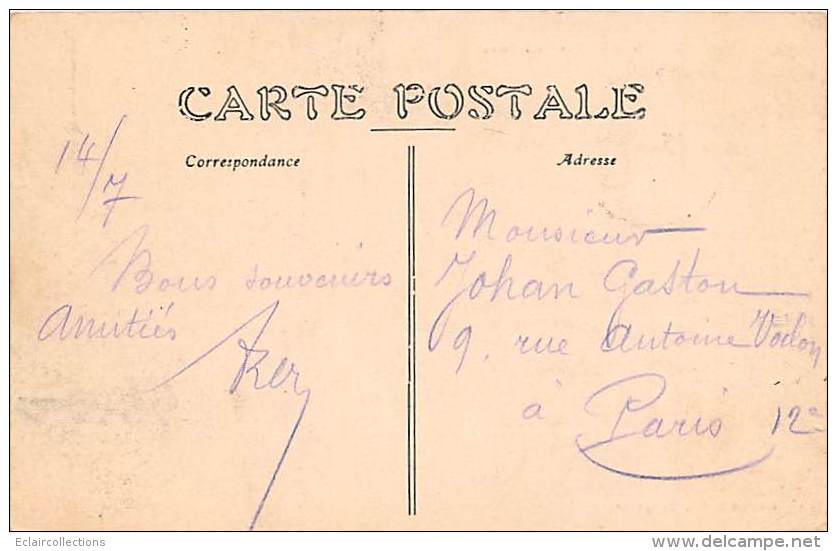 CARTE POSTALE
Correspondance
Adresse
14/7
Bons souvenirs
Amitiés
Monsieur
Johan Gaston
9, rue Antoine Vollon
à Paris 12e
Eclaircollections
www.delcampe.net